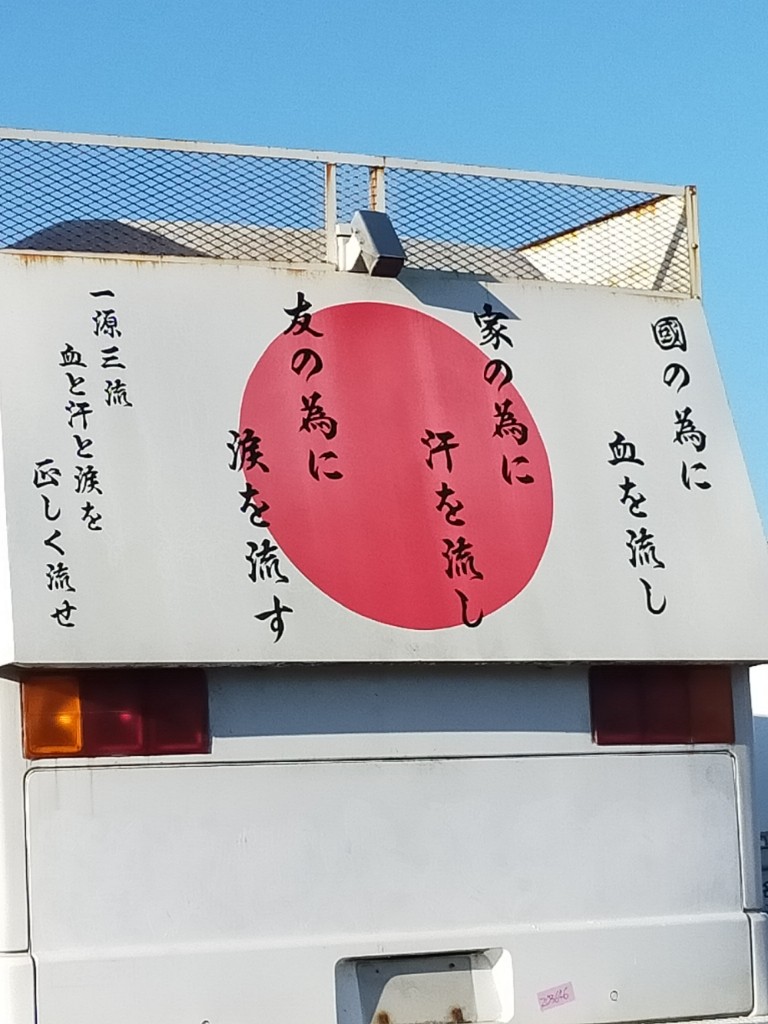 國の為に
血を流し
家の為に
汗を流し
友の為に
涙を流す
一源三流
血と汗と涙を
正しく流せ